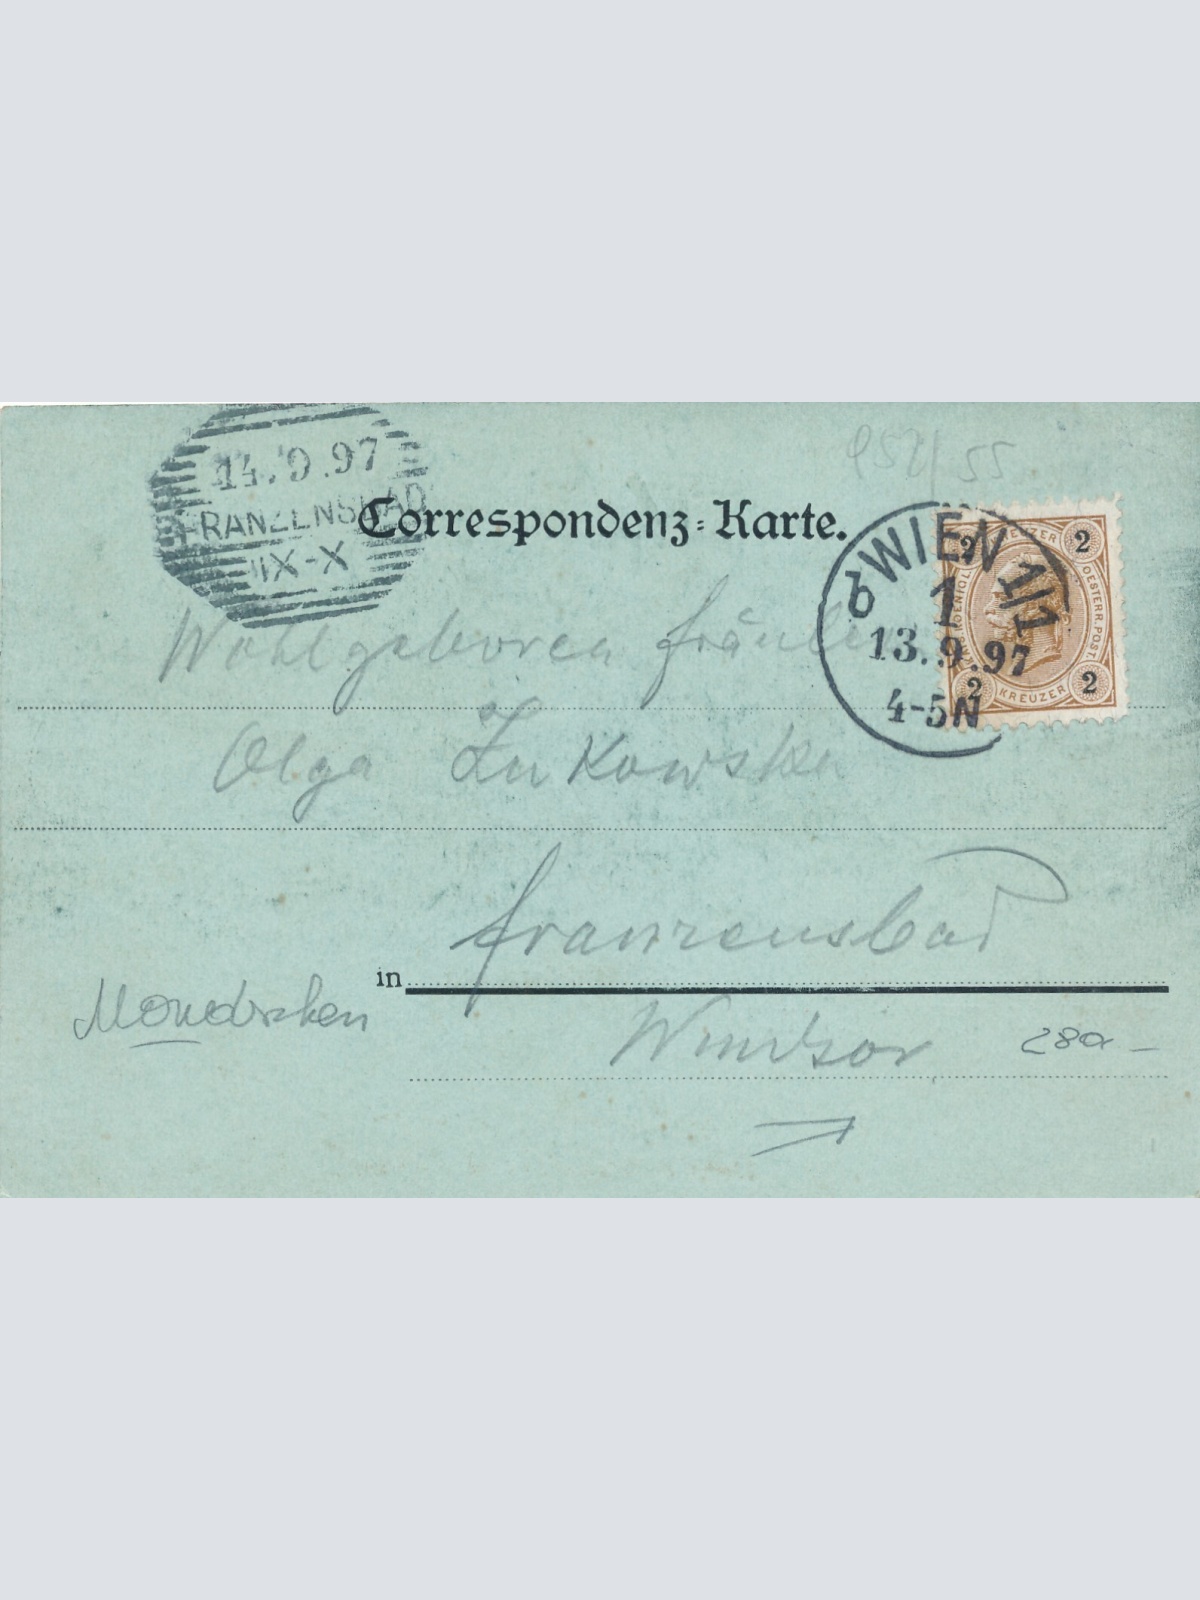 952/55
14.9.97
FRANZENSBAD
IX-X
Correspondenz-Karte.
WIEN 1/1
1
13.9.97
4-5N
2 2
KREUZER
OESTERR.POST.
2 2
Wohlgeboren Fräulein
Olga Zukowska
in Franzensbad
Windsor
Mondschein
280.-